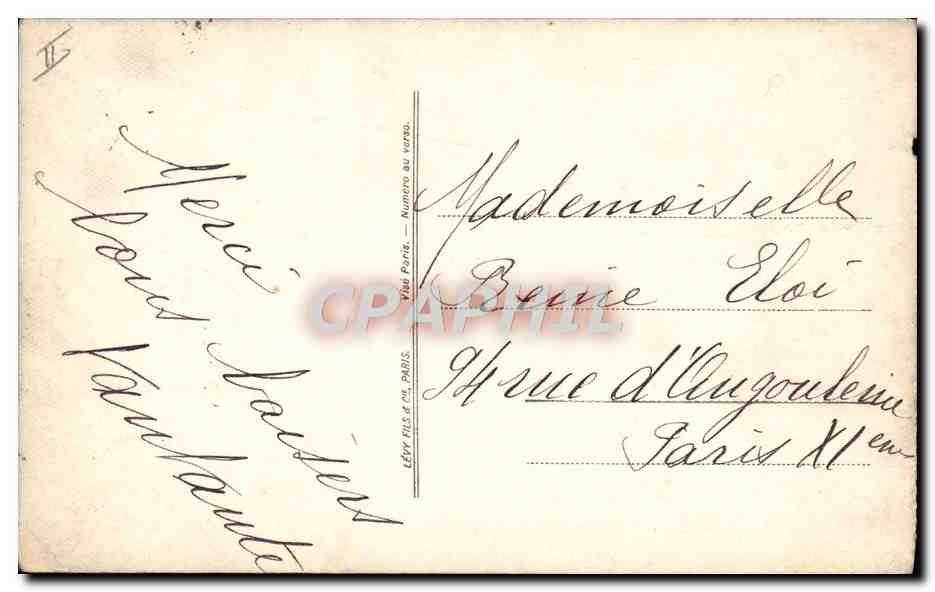 II
Merci baisers
Tante
LÉVY FILS & Cie, PARIS. Visé Paris. — Numéro au verso.
Mademoiselle
Eloi
94 rue d'Angouleme
Paris XIeme
CPAPHIL